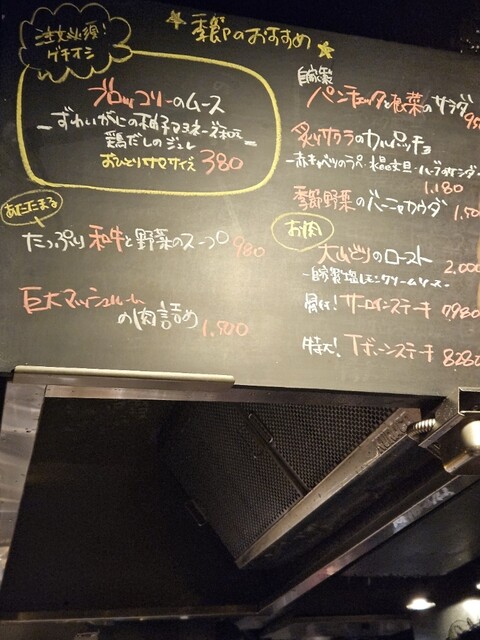 季節のおすすめ
ご注文必須!
ゲキオシ
ブロッコリーのムース
ずわいがにの柚子マヨネーズ和え
鶏だしのジュレ
おひとりサマサイズ 380
あたたまる
たっぷり和牛と野菜のスープ 980
巨大マッシュルーム
の肉詰め 1,500
自家製
パンチェッタと根菜のサラダ 950
炙りサワラのカルパッチョ
1,180
季節野菜のバーニャカウダ 1,50
お肉
大山どりのロースト 2,000
自家製塩レモンクリームソース
骨付!サーロインステーキ 7,980
特大!Tボーンステーキ 8280